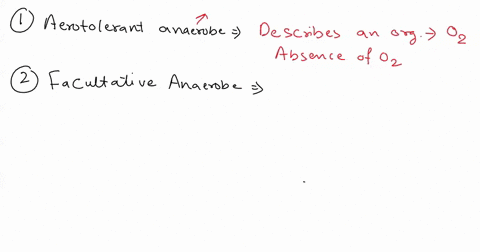 ① Aerotolerant anaerobe ⇒ Describes an org. → O₂
Absence of O₂
② Facultative Anaerobe ⇒